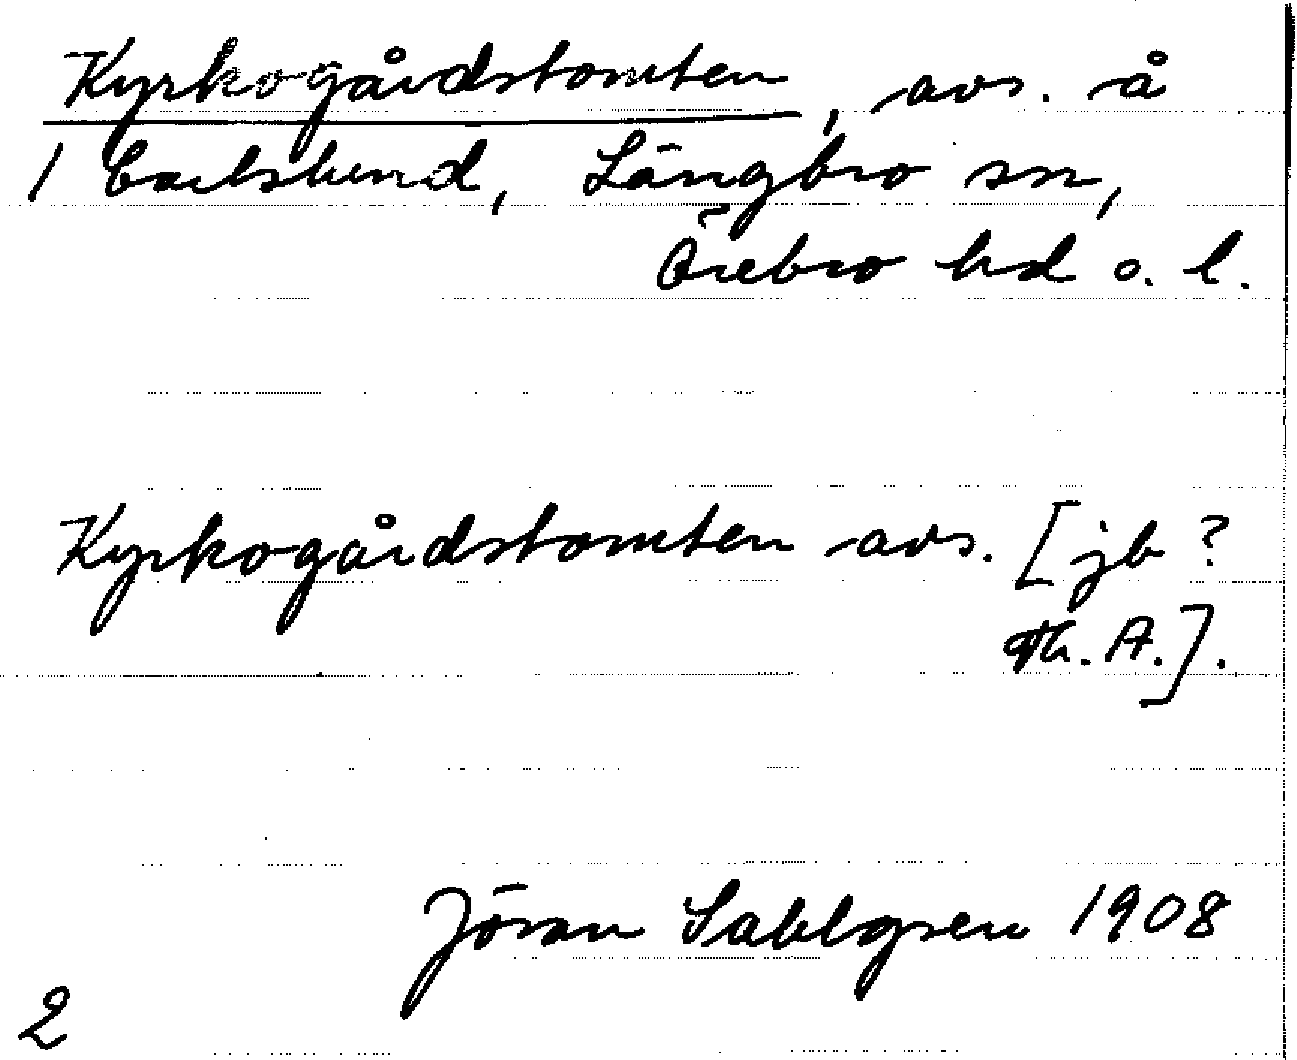 Kyrkogårdstomten, avs. å
1 Carlslund, Längbro sn,
Örebro hd o. l.
Kyrkogårdstomten avs. [jb?
Th. A.].
Jöran Sahlgren 1908
2